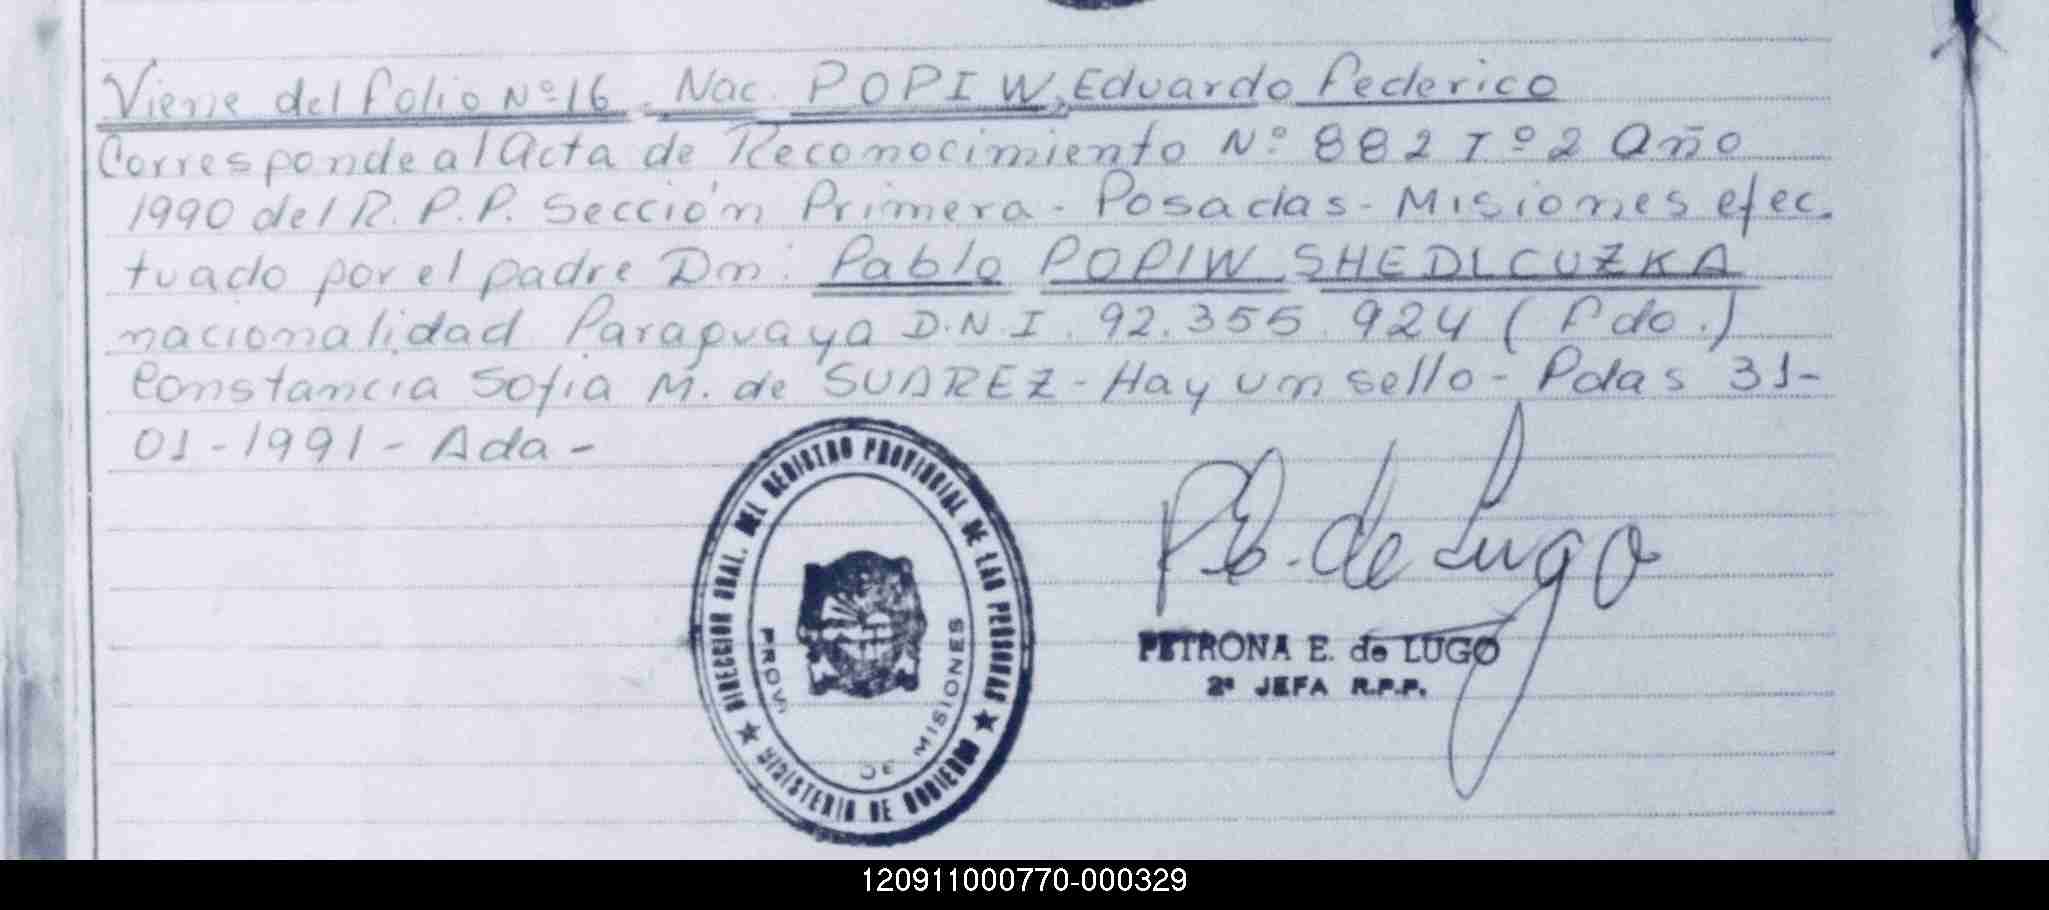 Viene del folio Nº 16. Nac. POPIW, Eduardo Federico
Corresponde al Acta de Reconocimiento Nº 882 Tº 2 Año
1990 del R.P.P. Sección Primera - Posadas - Misiones efec.
tuado por el padre Dn: Pablo POPIW SHEDLCUZKA
nacionalidad Paraguaya D.N.I. 92.355.924 (Fdo.)
Constancia Sofia M. de SUAREZ - Hay un sello - Pdas 31-
01-1991 - Ada -
DIRECCION GRAL. DEL REGISTRO PROVINCIAL DE LAS PERSONAS
★ MINISTERIO DE GOBIERNO ★
PROV. DE MISIONES
P E. de Lugo
PETRONA E. de LUGO
2ª JEFA R.P.P.
120911000770-000329